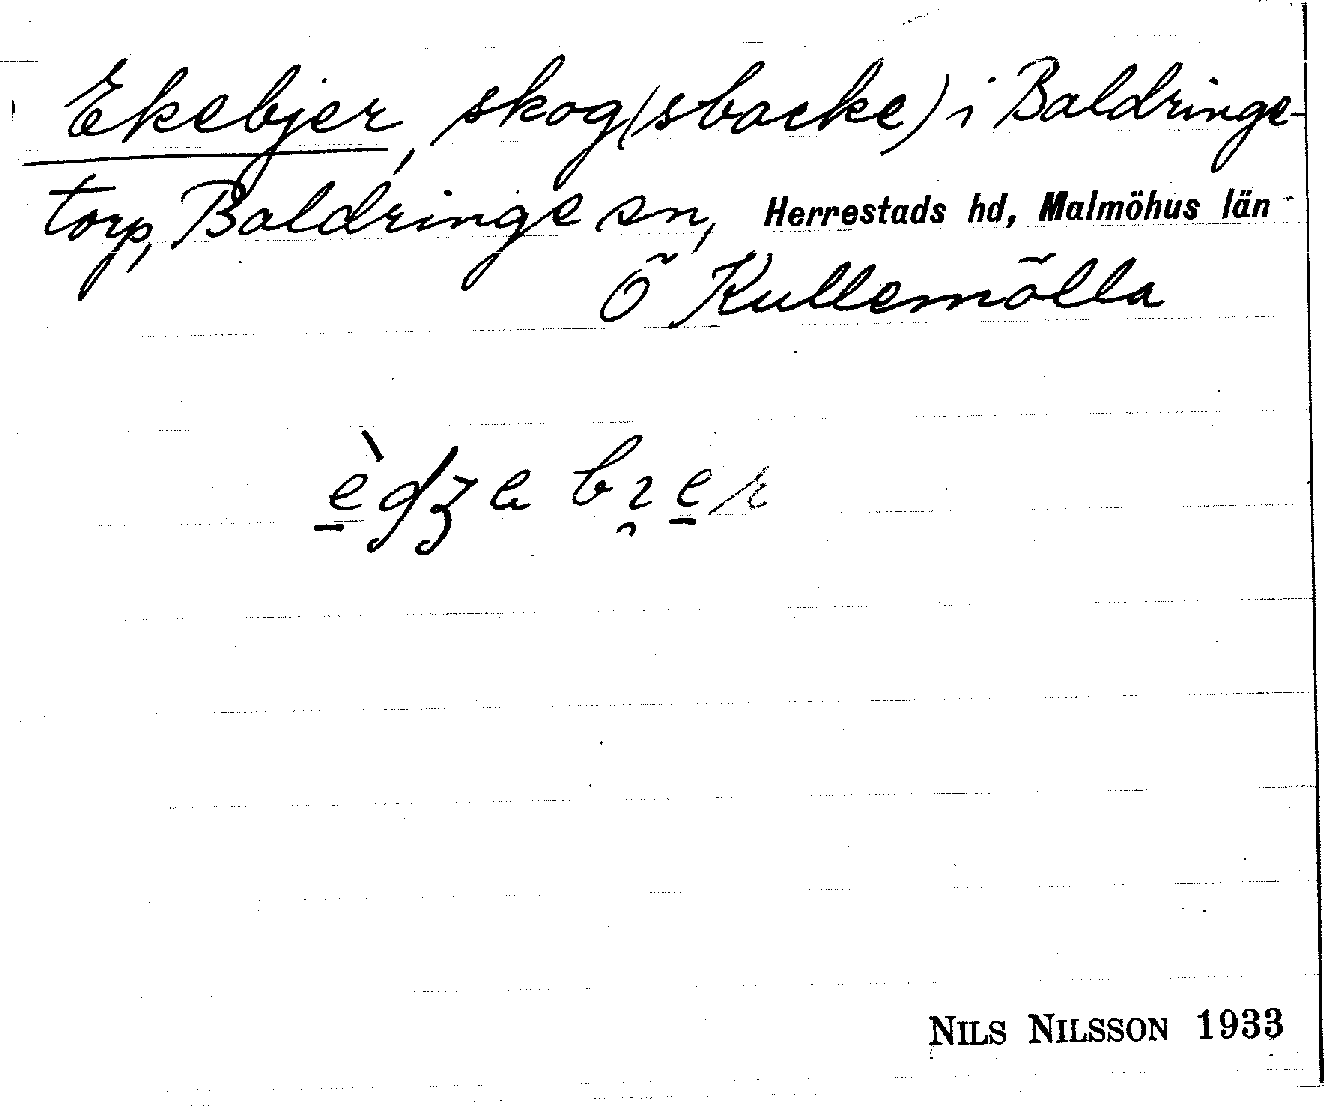 Ekebjer, skog(sbacke) i Baldringe-
torp, Baldringe sn, Herrestads hd, Malmöhus län
Ö Kullemölla
NILS NILSSON 1933